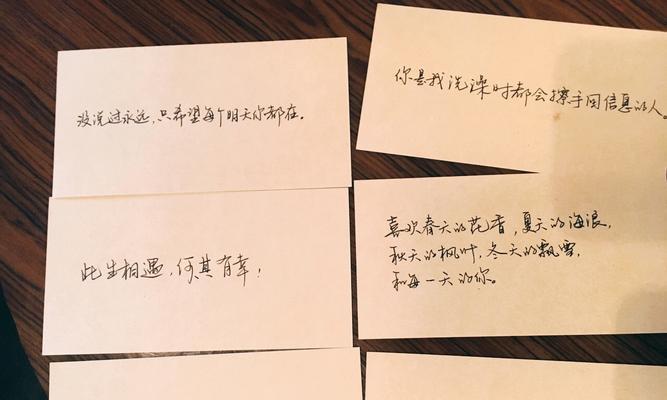 没说过永远，只希望每个明天你都在。
你是我洗澡时都会擦手回信息的人。
此生相遇，何其有幸！
喜欢春天的花香，夏天的海浪，
秋天的枫叶，冬天的飘雪，
和每一天的你。